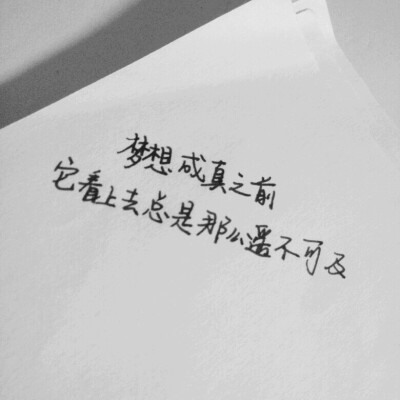 梦想成真之前
它看上去总是那么遥不可及